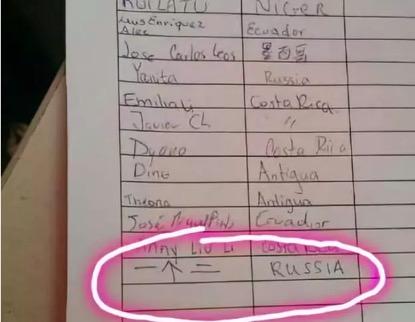 RUILATU NIGER
Luis Enriquez
Alec Ecuador
Jose Carlos Leos 墨西哥
Yanita Russia
Emilia Li Costa Rica
Javier Ch "
Dyana Costa Rica
Dino Antigua
Theona Antigua
José Ecuador
Liu Li Costa Rica
一个二 RUSSIA